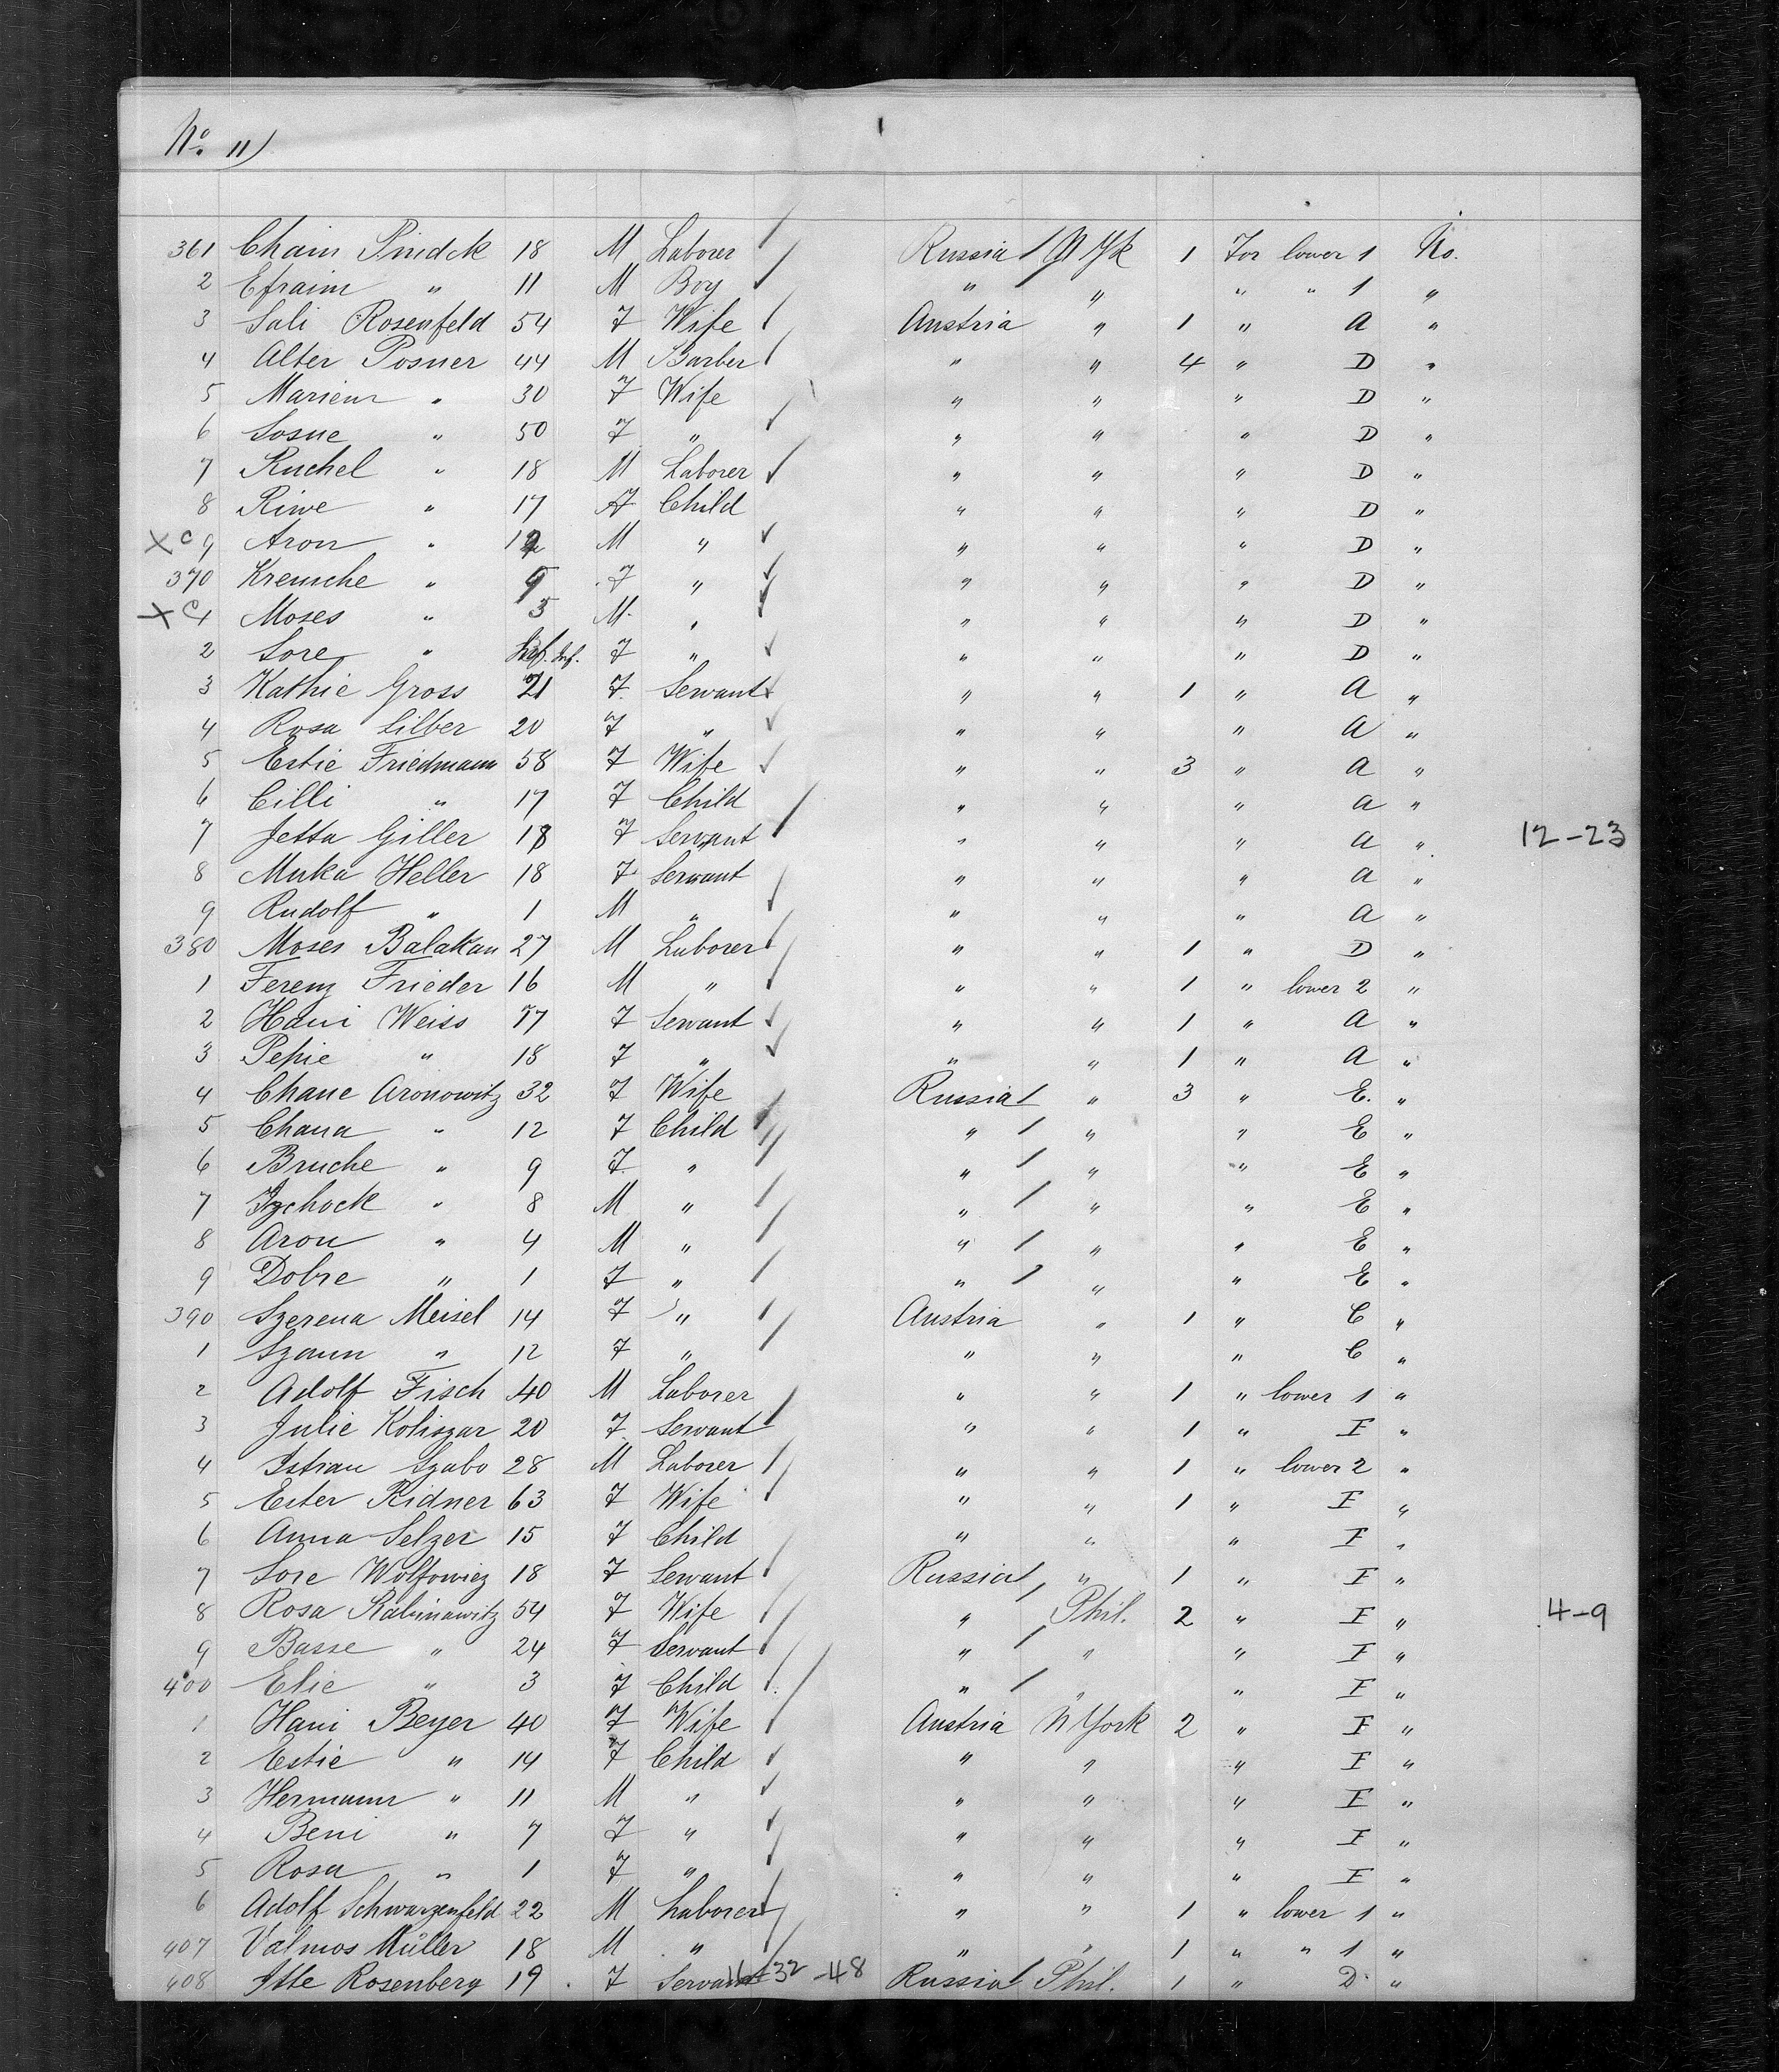 No. 11)
361 Chaim Pindck 18 M Laborer Russia N Yk 1 For lower 1 No.
2 Efraim " 11 M Boy " " " " 1 "
3 Sali Rosenfeld 54 F Wife Austria " 1 " A "
4 Alter Posner 44 M Barber " " 4 " D "
5 Mariem " 30 F Wife " " " D "
6 Sosne " 50 F " " " " D "
7 Ruchel " 18 M Laborer " " " D "
8 Riwe " 17 F Child " " " D "
X C 9 Aron " M " " " " D "
370 Kreusche " 9 F " " " " D "
X C 1 Moses " 5 M " " " " D "
2 Sore " Inf. F " " " " D "
3 Kathie Gross 21 F Servant " " 1 " A "
4 Rosa Silber 20 F " " " " A "
5 Estie Friedmann 58 F Wife " " 3 " A "
6 Cilli " 17 F Child " " " A "
7 Jetta Giller 18 F Servant " " " A " 12-23
8 Muka Heller 18 F Servant " " " A "
9 Rudolf " 1 M " " " " A "
380 Moses Balakan 27 M Laborer " " 1 " D "
1 Ferenz Frieder 16 M " " " 1 " lower 2 "
2 Hani Weiss 17 F Servant " " 1 " A "
3 Pepie " 18 F " " " 1 " A "
4 Chane Aronowitz 32 F Wife Russia " 3 " E. "
5 Chana " 12 F Child " " " E "
6 Bruche " 9 F " " " " E "
7 Izchock " 8 M " " " " E "
8 Aron " 4 M " " " " E "
9 Dobre " 1 F " " " " E "
390 Szerena Meisel 14 F " Austria " 1 " C "
1 Szann " 12 F " " " " C "
2 Adolf Fisch 40 M Laborer " " 1 " lower 1 "
3 Julie Koliszar 20 F Servant " " 1 " F "
4 Istvan Szabo 28 M Laborer " " 1 " lower 2 "
5 Ester Ridner 63 F Wife " " 1 " F "
6 Anna Selzer 15 F Child " " " F "
7 Sore Wolfowicz 18 F Servant Russia " 1 " F "
8 Rosa Rabinawitz 54 F Wife " Phil. 2 " F " 4-9
9 Basse " 24 F Servant " " " F "
400 Elie " 3 F Child " " " F "
1 Hani Beyer 40 F Wife Austria N York 2 " F "
2 Estie " 14 F Child " " " F "
3 Hermann " 11 M " " " " F "
4 Beni " 7 F " " " " F "
5 Rosa " 1 F " " " " F "
6 Adolf Schwarzenfeld 22 M Laborer " " 1 " lower 1 "
407 Valmos Müller 18 M " " " 1 " " 1 "
408 Itte Rosenberg 19 F Servant 16-32-48 Russia Phil. 1 " D "